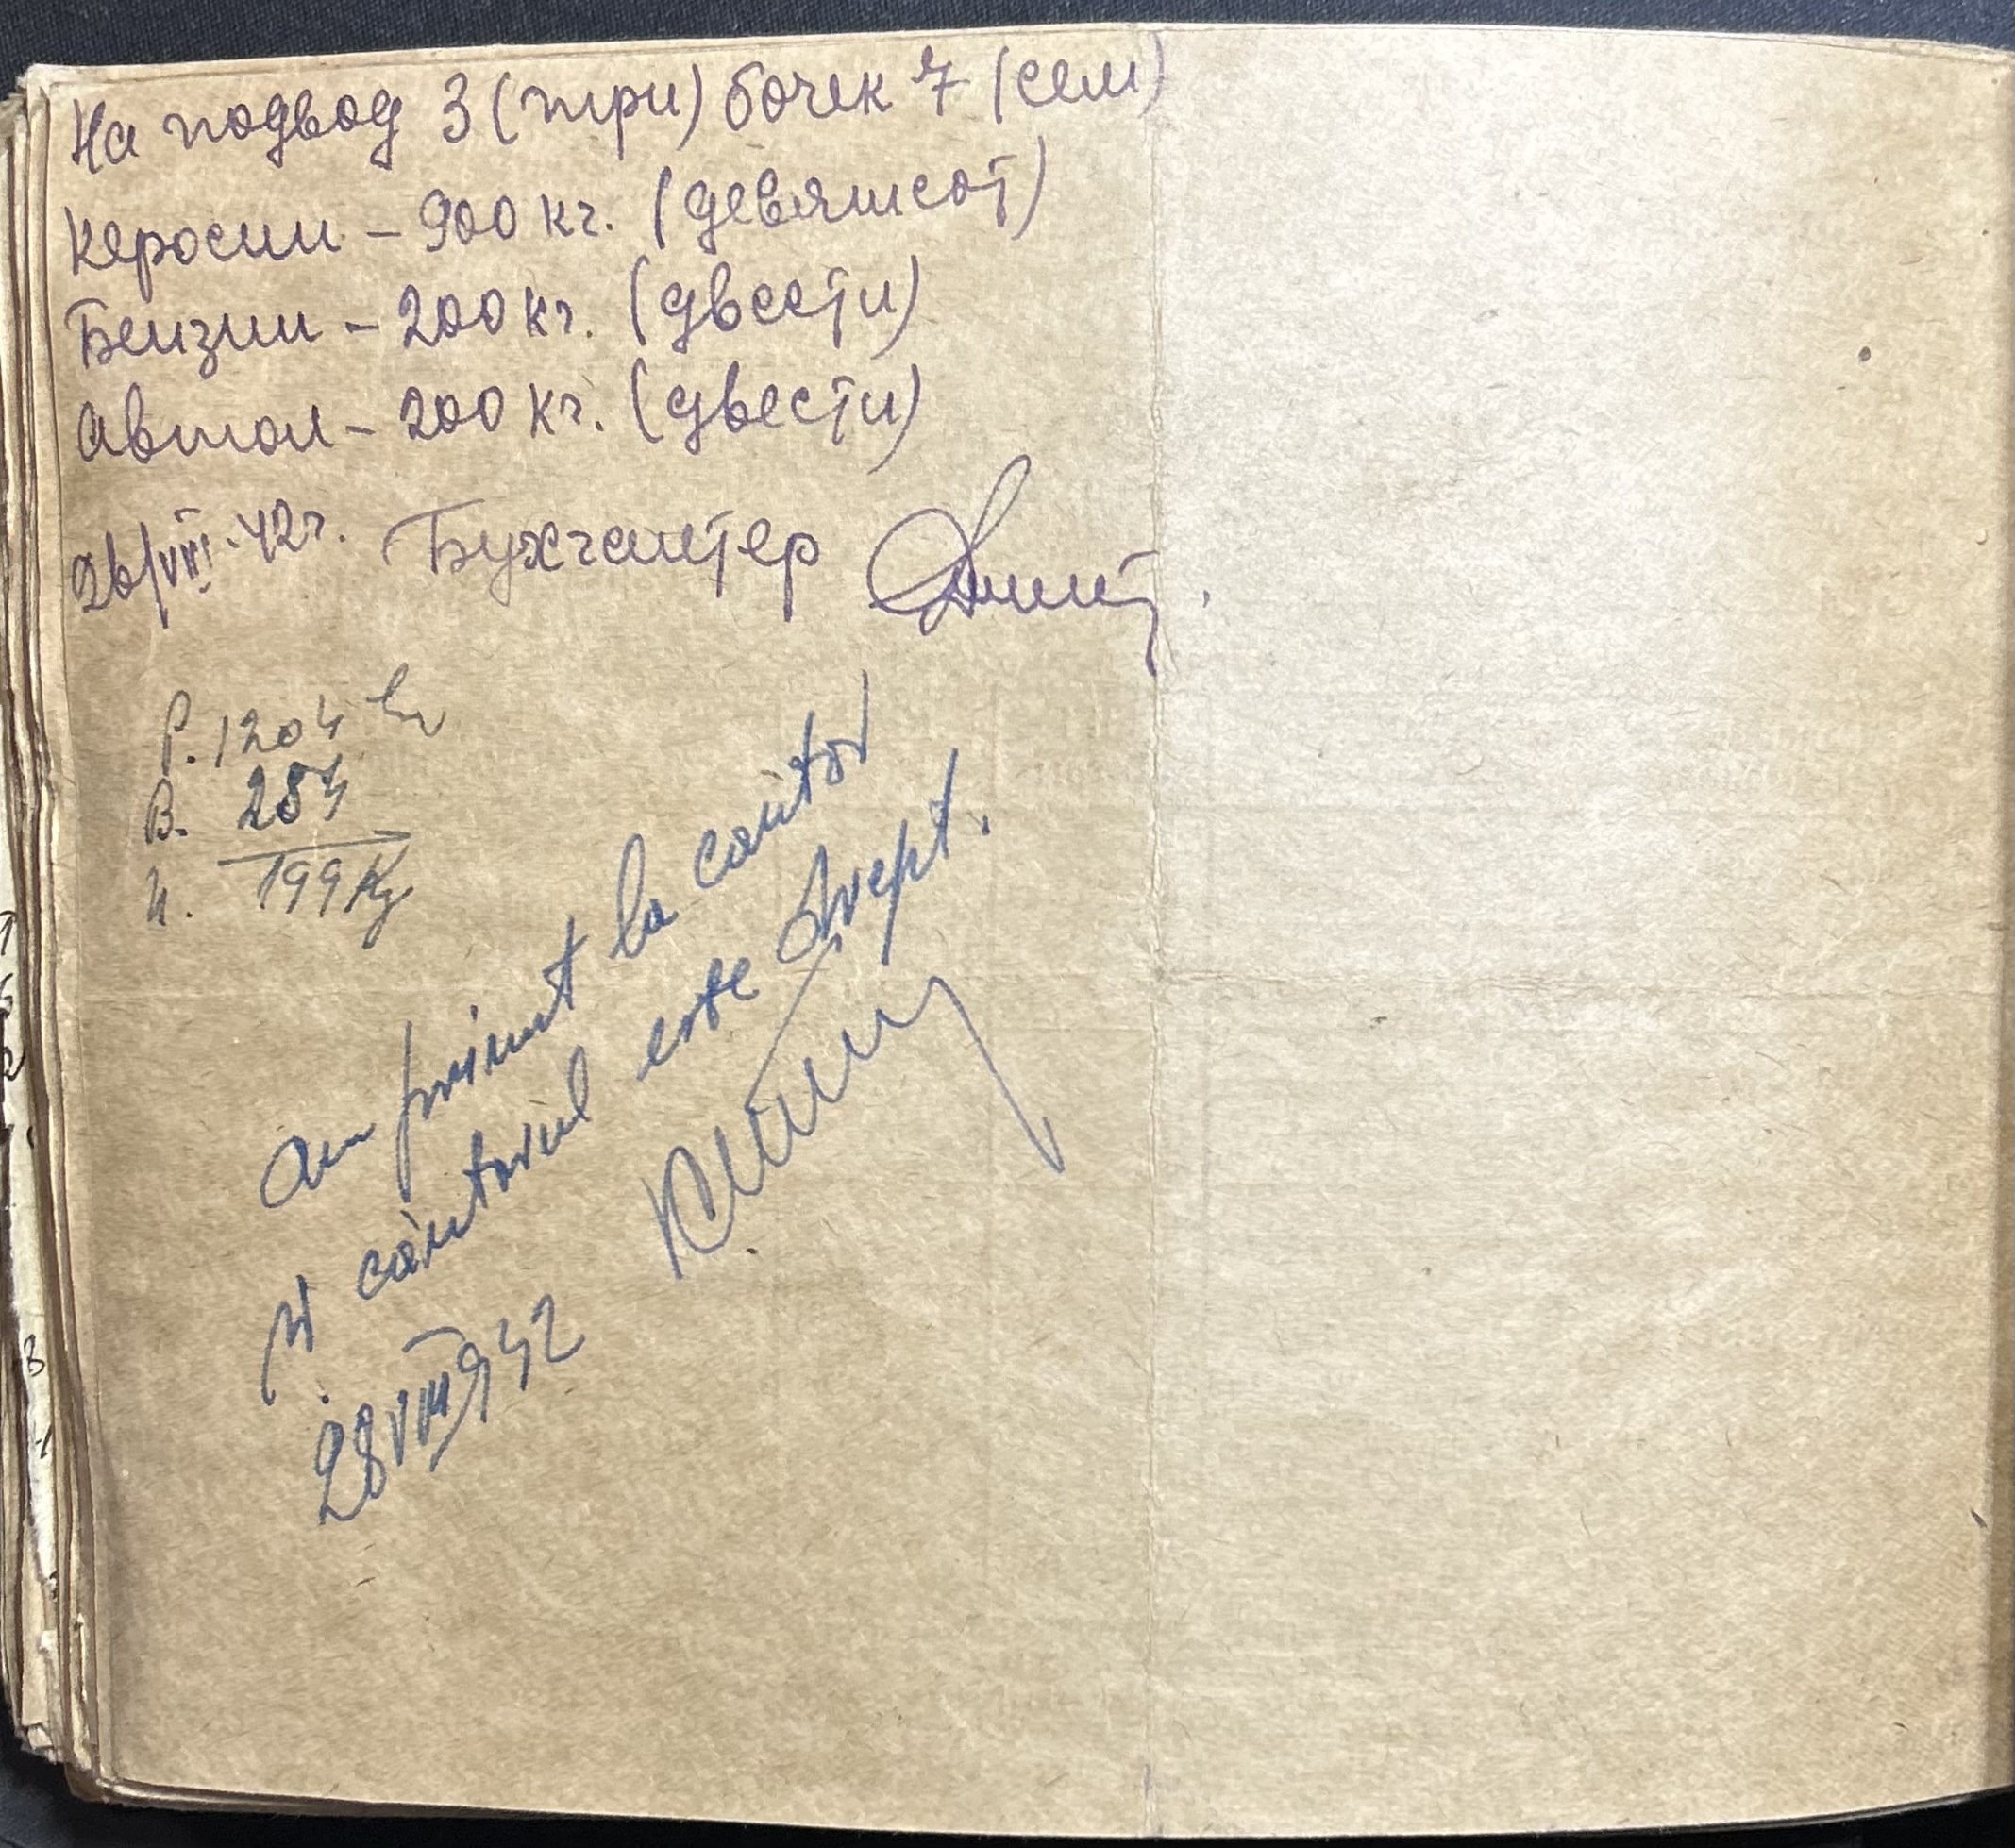 На подвод 3 (три) бочек 7 (сем)
Керосин – 900 кг. (девятсот)
Бензин – 200 кг. (двести)
Автол – 200 кг. (двести)
26/VIII-42г. Бухгалтер
P. 1204
B. 284
N. 199 Kg
Am primit la cântar
și cântarul este drept.
28 VIII 942